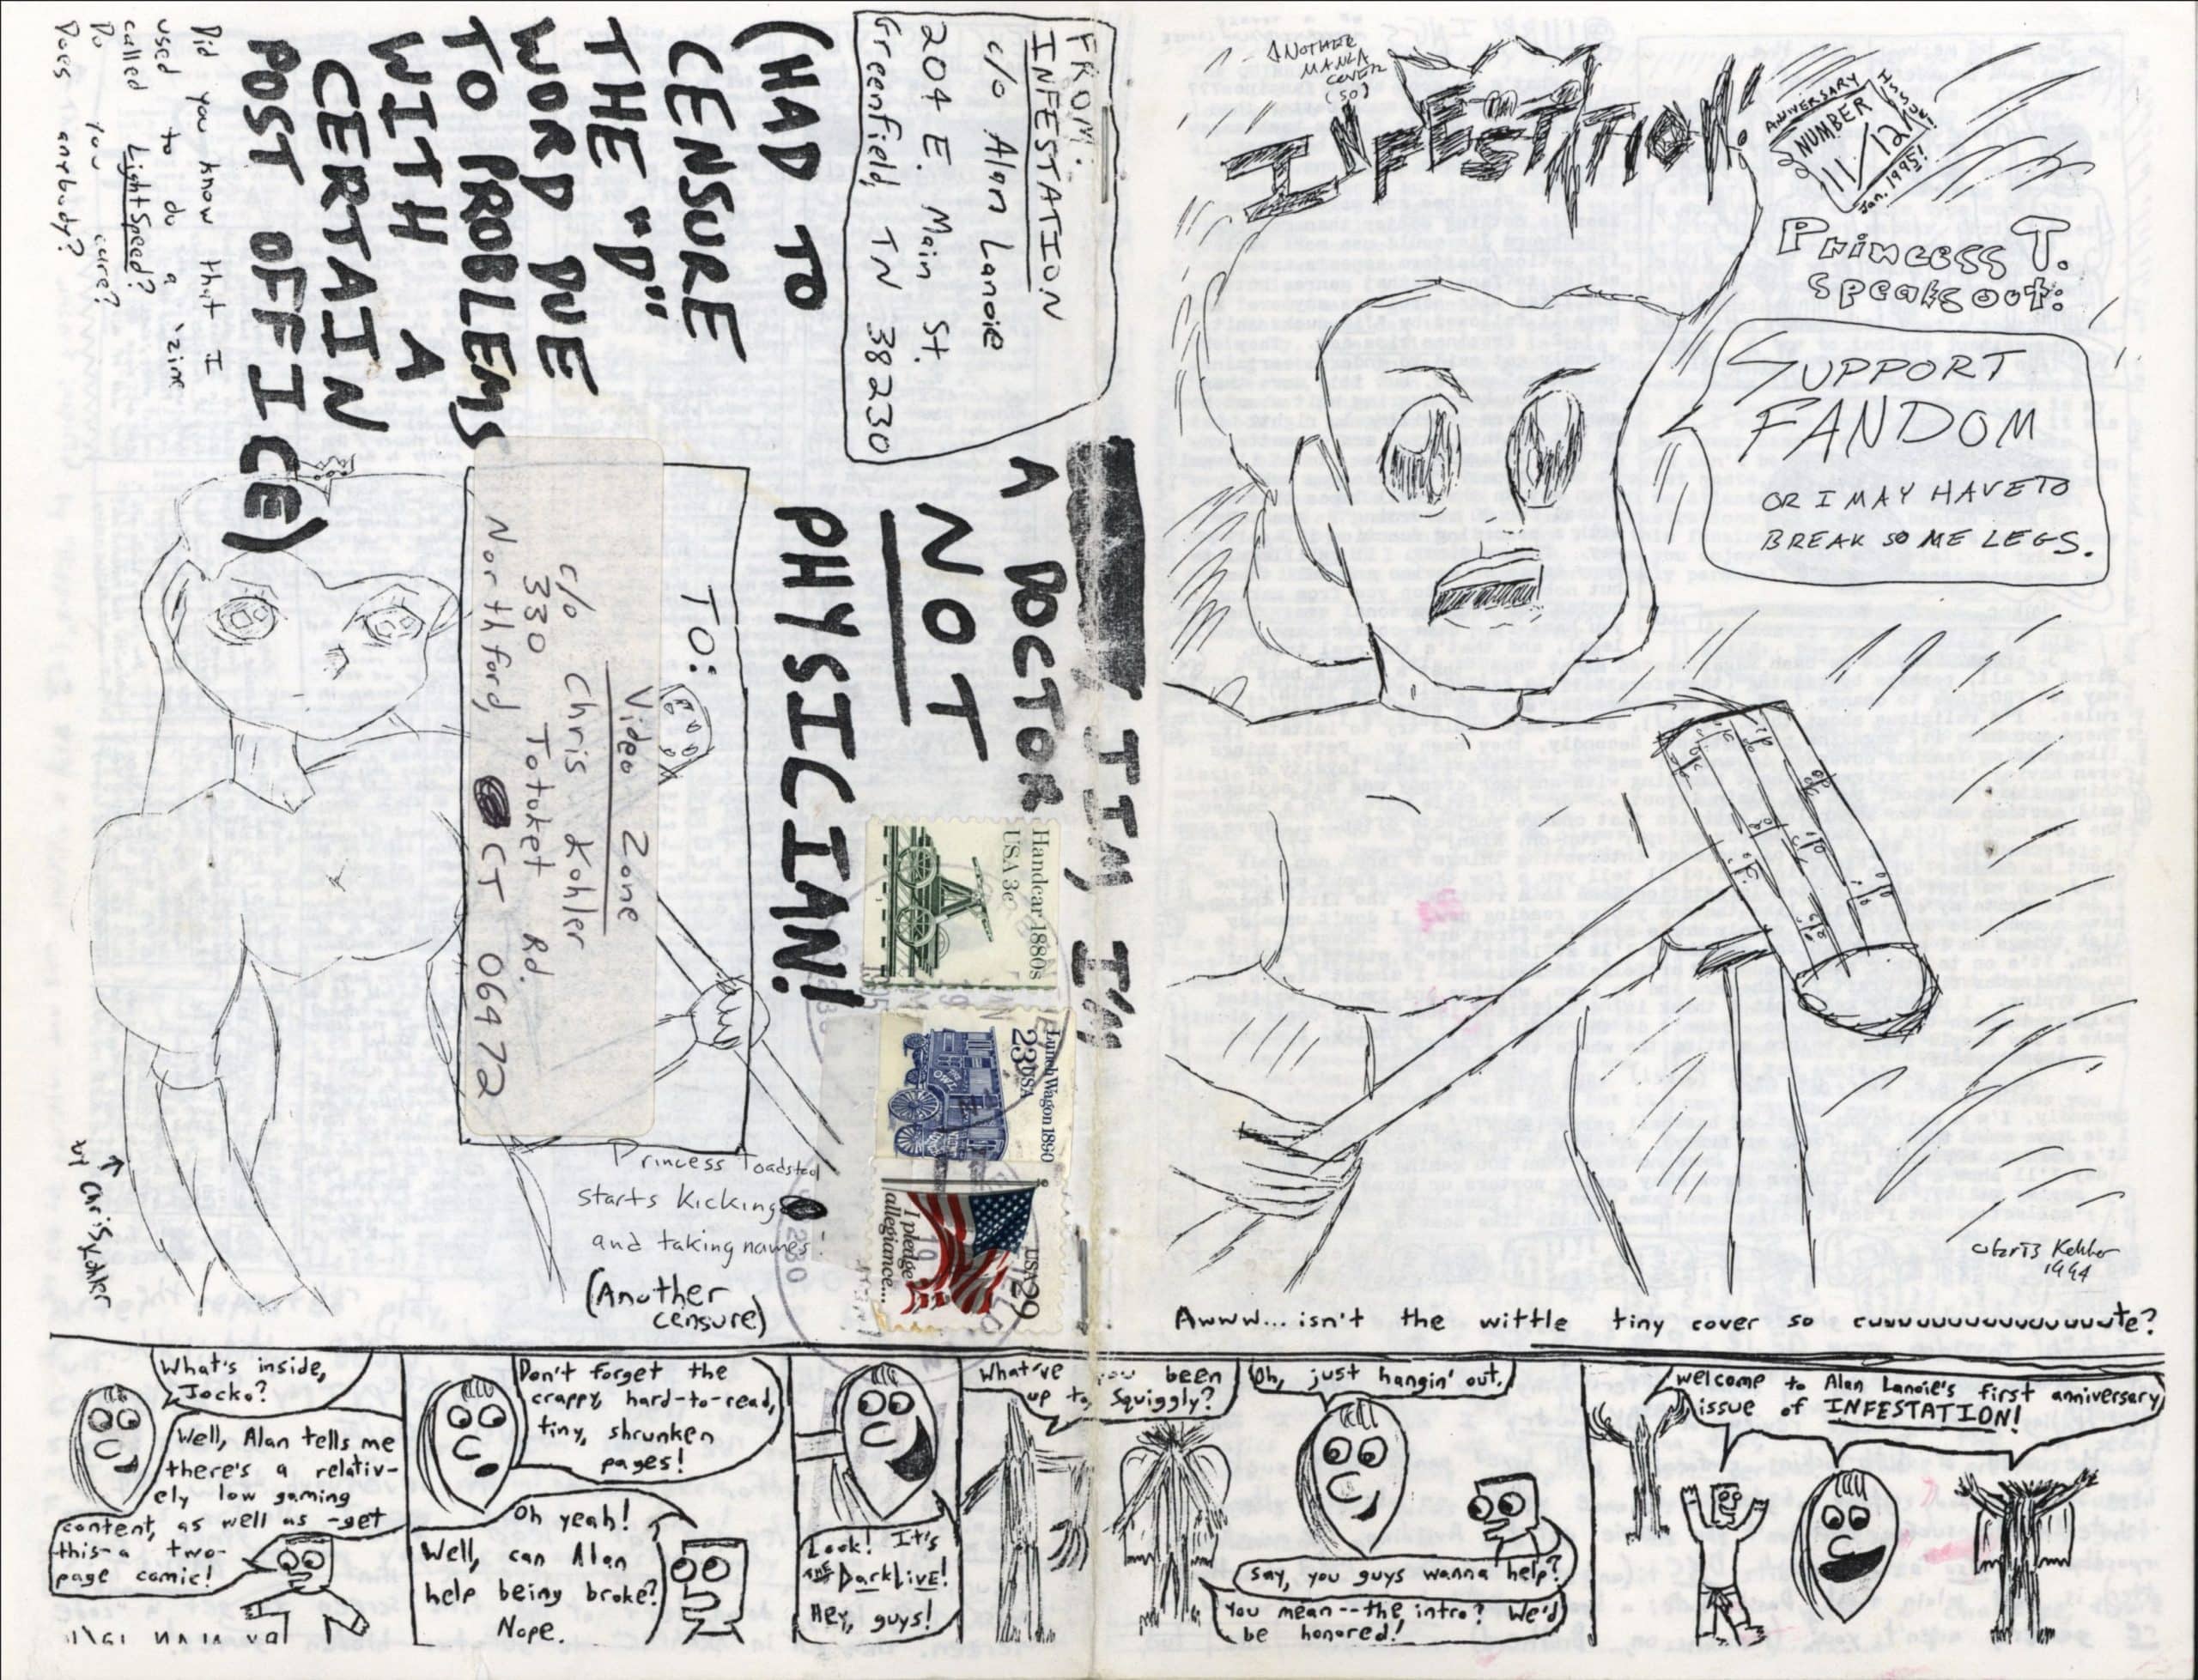 ANOTHER
MANGA
COVER
(SO)
INFESTATION!
ANNIVERSARY
ISSUE!
NUMBER
11/12!
Jan. 1995!
PRINCESS T.
SPEAKS OUT:
SUPPORT
FANDOM
OR I MAY HAVE TO
BREAK SOME LEGS.
Chris Kohler
1994
Awww... isn't the wittle tiny cover so cuuuuuuuuuuuuuuuute?
FROM:
INFESTATION
c/o Alan Lanoie
204 E. Main St.
Greenfield, TN 38230
JIM, I'M
A DOCTOR
NOT
PHYSICIAN!
(HAD TO
CENSURE
THE "D"
WORD DUE
TO PROBLEMS
WITH A
CERTAIN
POST OFFICE)
Did you know that I
used to do a 'zine
called LightSpeed?
Do you care?
Does anybody?
TO:
Video Zone
c/o Chris Kohler
330 Totoket Rd.
Northford, CT 06472
Handcar 1880s
USA 3c
Lunch Wagon 1890
23 USA
USA 29
I pledge
allegiance...
Princess Toadstool
starts kicking
and taking names!
(Another
censure)
by Chris Kohler
What's inside,
Jocko?
Well, Alan tells me
there's a relativ-
ely low gaming
content, as well as -get
this- a two-
page comic!
Don't forget the
crappy, hard-to-read,
tiny, shrunken
pages!
Oh yeah!
Well, can Alan
help being broke?
Nope.
Look! It's
the DarkLIVE!
Hey, guys!
What've you been
up to, Squiggly?
Oh, just hangin' out.
Say, you guys wanna help?
You mean--the intro? We'd
be honored!
Welcome to Alan Lanoie's first anniversary
issue of INFESTATION!